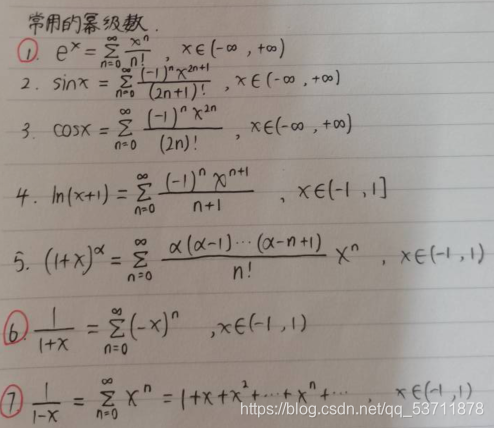 常用的幂级数.
① e^x = ∑_{n=0}^{∞} x^n/n! , x∈(-∞, +∞)
2. sinx = ∑_{n=0}^{∞} (-1)^n x^{2n+1}/(2n+1)! , x∈(-∞, +∞)
3. cosx = ∑_{n=0}^{∞} (-1)^n x^{2n}/(2n)! , x∈(-∞, +∞)
4. ln(x+1) = ∑_{n=0}^{∞} (-1)^n x^{n+1}/(n+1) , x∈(-1, 1]
5. (1+x)^α = ∑_{n=0}^{∞} α(α-1)···(α-n+1)/n! x^n , x∈(-1, 1)
⑥ 1/(1+x) = ∑_{n=0}^{∞} (-x)^n , x∈(-1, 1)
⑦ 1/(1-x) = ∑_{n=0}^{∞} x^n = 1+x+x^2+···+x^n+··· , x∈(-1, 1)
https://blog.csdn.net/qq_53711878